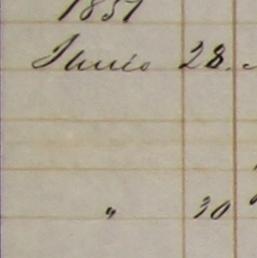 1857
Junio 28.
" 30